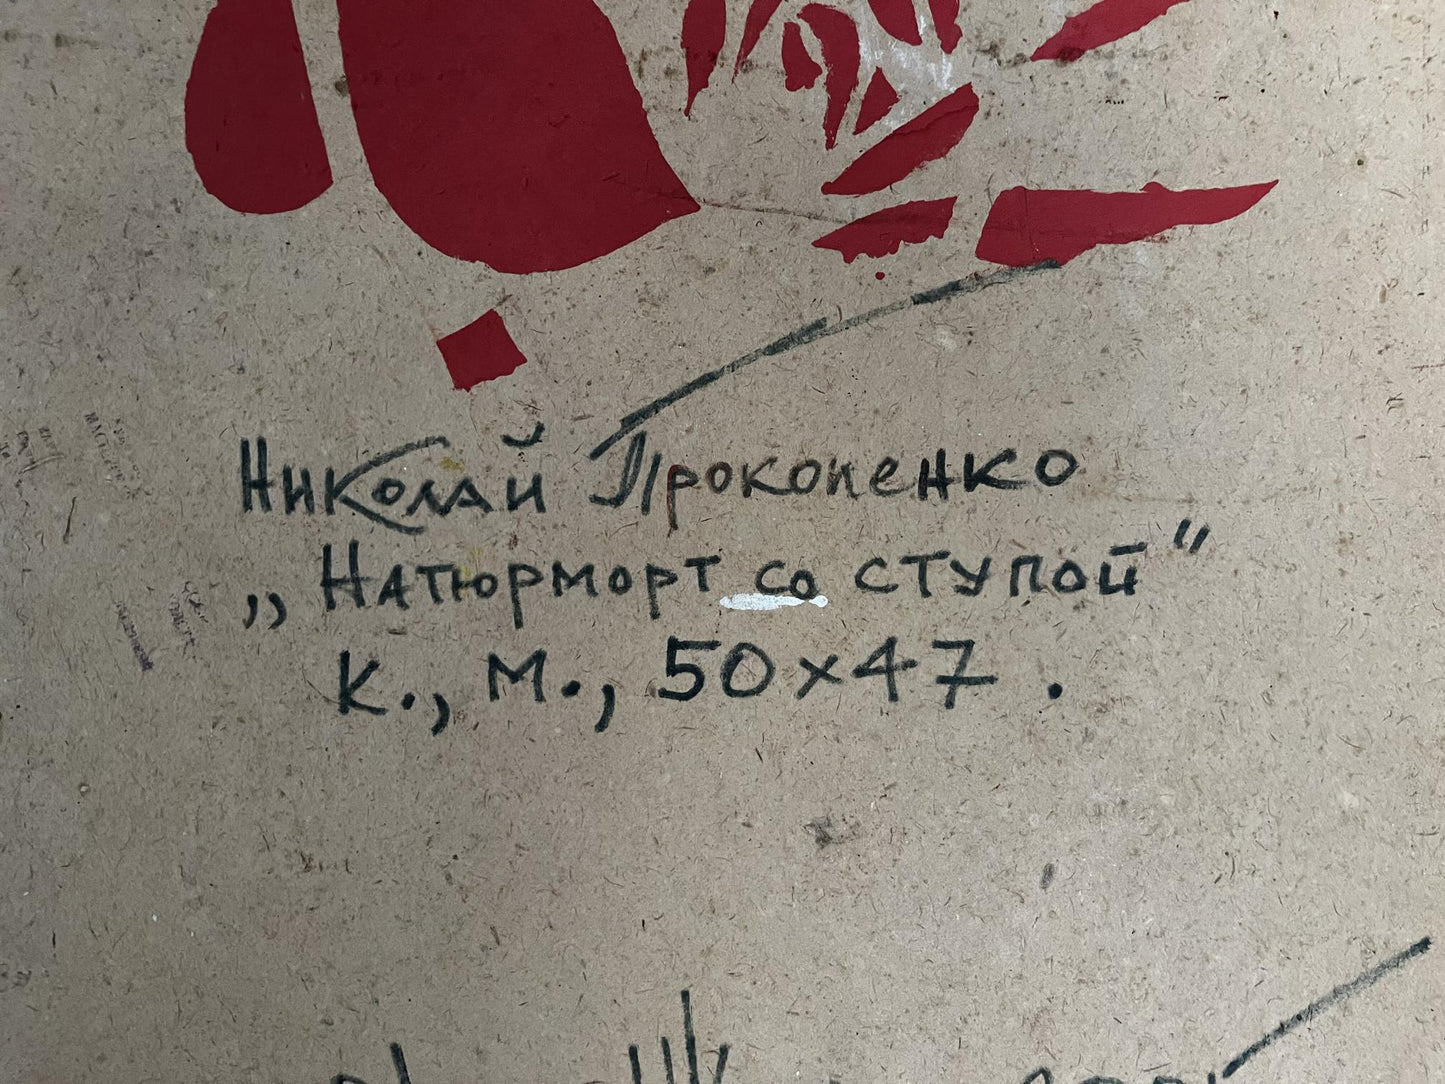 Николай Прокопенко
„Натюрморт со ступой"
К., М., 50×47.